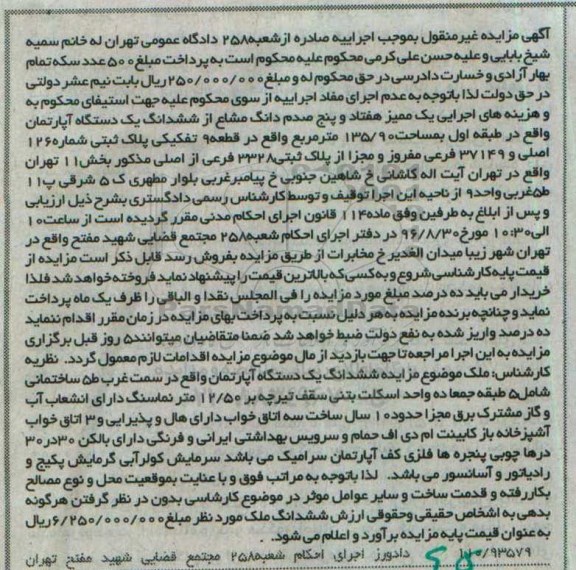 آگهی مزایده غیرمنقول بموجب اجراییه صادره ازشعبه۲۵۸ دادگاه عمومی تهران له خانم سمیه
شیخ بابایی و علیه حسن علی کرمی محکوم علیه محکوم است به پرداخت مبلغ۵۰۰عدد سکه تمام
بهار آزادی و خسارت دادرسی در حق محکوم له و مبلغ۲۵۰/۰۰۰/۰۰۰ریال بابت نیم عشر دولتی
در حق دولت لذا باتوجه به عدم اجرای مفاد اجراییه از سوی محکوم علیه جهت استیفای محکوم به
و هزینه های اجرایی یک ممیز هفتاد و پنج صدم دانگ مشاع از ششدانگ یک دستگاه آپارتمان
واقع در طبقه اول بمساحت۱۳۵/۹۰ مترمربع واقع در قطعه۹ تفکیکی پلاک ثبتی شماره۱۲۶
اصلی و ۳۷۱۴۹ فرعی مفروز و مجزا از پلاک ثبتی۳۳۲۸ فرعی از اصلی مذکور بخش۱۱ تهران
واقع در تهران آیت اله کاشانی خ شاهین جنوبی خ پیامبرغربی بلوار مطهری ک ۵ شرقی پ۱۱
ط۵غربی واحد۹ از ناحیه این اجرا توقیف و توسط کارشناس رسمی دادگستری بشرح ذیل ارزیابی
و پس از ابلاغ به طرفین وفق ماده۱۱۴ قانون اجرای احکام مدنی مقرر گردیده است از ساعت۱۰
الی۱۰:۳۰ مورخ۹۶/۸/۳۰ در دفتر اجرای احکام شعبه۲۵۸ مجتمع قضایی شهید مفتح واقع در
تهران شهر زیبا میدان الغدیر خ مخابرات از طریق مزایده بفروش رسد قابل ذکر است مزایده از
قیمت پایه کارشناسی شروع و به کسی که بالاترین قیمت را پیشنهاد نماید فروخته خواهد شد فلذا
خریدار می باید ده درصد مبلغ مورد مزایده را فی المجلس نقدا و الباقی را ظرف یک ماه پرداخت
نماید و چنانچه برنده مزایده به هر دلیل نسبت به پرداخت بهای مزایده در زمان مقرر اقدام ننماید
ده درصد واریز شده به نفع دولت ضبط خواهد شد ضمنا متقاضیان میتوانند۵ روز قبل برگزاری
مزایده به این اجرا مراجعه تا جهت بازدید از مال موضوع مزایده اقدامات لازم معمول گردد. نظریه
کارشناس: ملک موضوع مزایده ششدانگ یک دستگاه آپارتمان واقع در سمت غرب ط۵ ساختمانی
شامل۵ طبقه جمعا ده واحد اسکلت بتنی سقف تیرچه بر ۱۲/۵۰ متر نماسنگ دارای انشعاب آب
و گاز مشترک برق مجزا حدود۱۰ سال ساخت سه اتاق خواب دارای هال و پذیرایی و۳ اتاق خواب
آشپزخانه باز کابینت ام دی اف حمام و سرویس بهداشتی ایرانی و فرنگی دارای بالکن ۳۰در۳۰
درها چوبی پنجره ها فلزی کف آپارتمان سرامیک می باشد سرمایش کولرآبی گرمایش پکیج و
رادیاتور و آسانسور می باشد. لذا باتوجه به مراتب فوق و با عنایت بموقعیت محل و نوع مصالح
بکاررفته و قدمت ساخت و سایر عوامل موثر در موضوع کارشناسی بدون در نظر گرفتن هرگونه
بدهی به اشخاص حقیقی وحقوقی ارزش ششدانگ ملک مورد نظر مبلغ۶/۲۵۰/۰۰۰/۰۰۰ریال
به عنوان قیمت پایه مزایده برآورد و اعلام می شود.
۱۱۰/۹۳۵۷۹ دادورز اجرای احکام شعبه۲۵۸ مجتمع قضایی شهید مفتح تهران